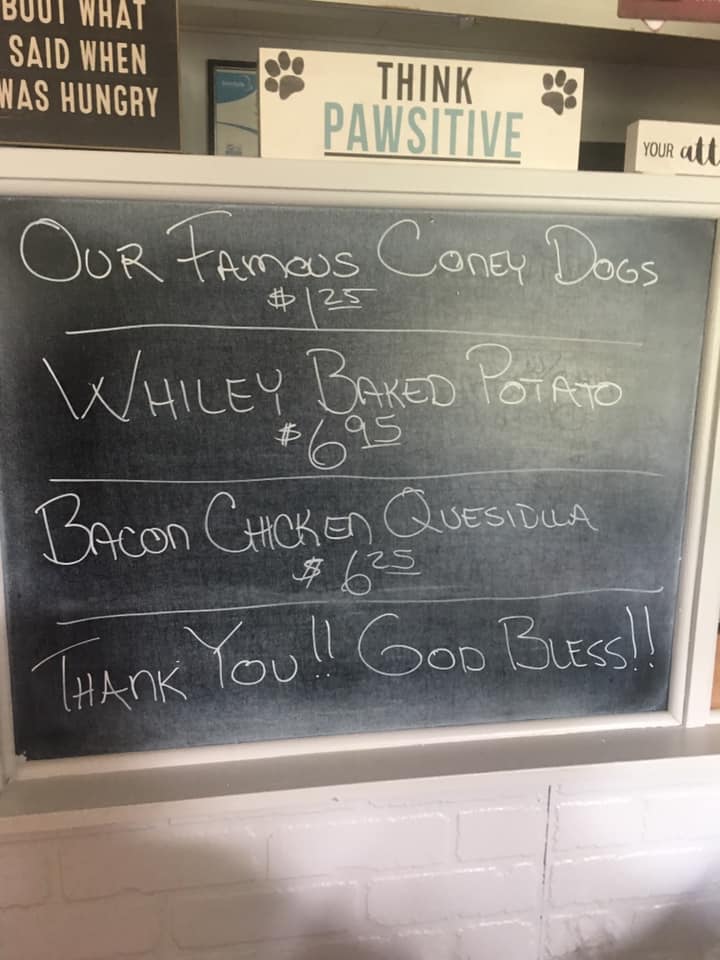 BOUT WHAT
SAID WHEN
WAS HUNGRY
THINK
PAWSITIVE
YOUR att
OUR FAMOUS CONEY DOGS
$1.25
WHILEY BAKED POTATO
$6.95
BACON CHICKEN QUESIDILLA
$6.25
THANK YOU!! GOD BLESS!!